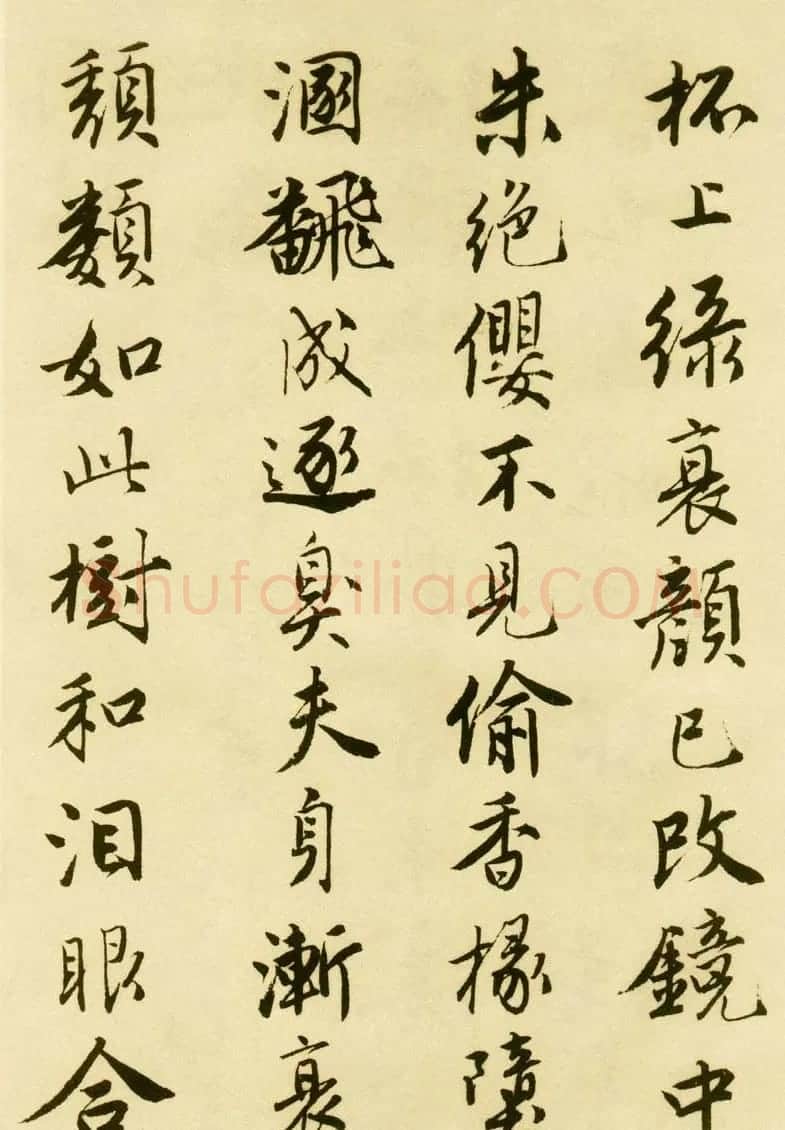 杯上綠衰顏已改鏡中
朱絕纓不見偷香椽墮
溷飜成逐臭夫身漸衰
頹類如此樹和泪眼合
Shufaziliao.COM